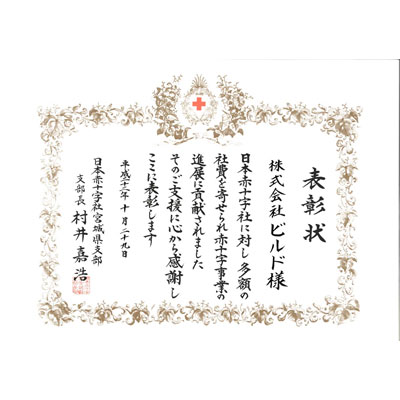 表彰状
株式会社ビルド様
日本赤十字社に対し多額の
社費を寄せられ赤十字事業の
進展に貢献されました
そのご支援に心から感謝し
ここに表彰します
平成二十二年十月二十九日
日本赤十字社宮城県支部
支部長 村井嘉浩